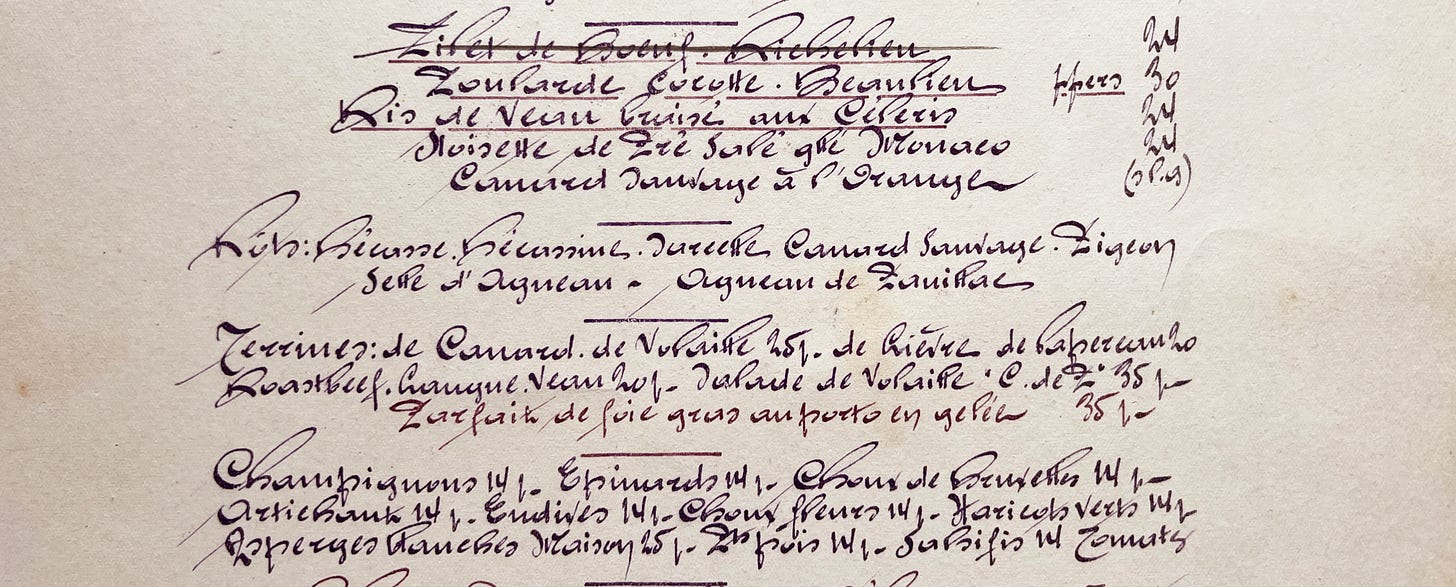 Filet de Boeuf. Richelieu 24
Poularde Cocotte. Beaulieu ppers 30
Ris de Veau braisé aux Céleris 24
Noisette de Pré Salé glé Monaco 24
Canard Sauvage à l'Orange (s.l.g)
Rôts: Bécasse. Bécassine. Sarcelle Canard Sauvage. Pigeon
Selle d'Agneau - Agneau de Pauillac
Terrines: de Canard. de Volaille 25f- de Lièvre de lapereau 20
Roastbeef. Langue. Veau 20f- Salade de Volaille "C. de P" 35f-
Parfait de foie gras au porto en gelée 35f-
Champignons 14f- Epinards 14f- Choux de bruxelles 14f-
Artichaut 14f- Endives 14f- Choux fleurs 14f- Haricots verts 14f-
Asperges blanches Maison 25f- Pts pois 14f- Salsifis 14 Tomates